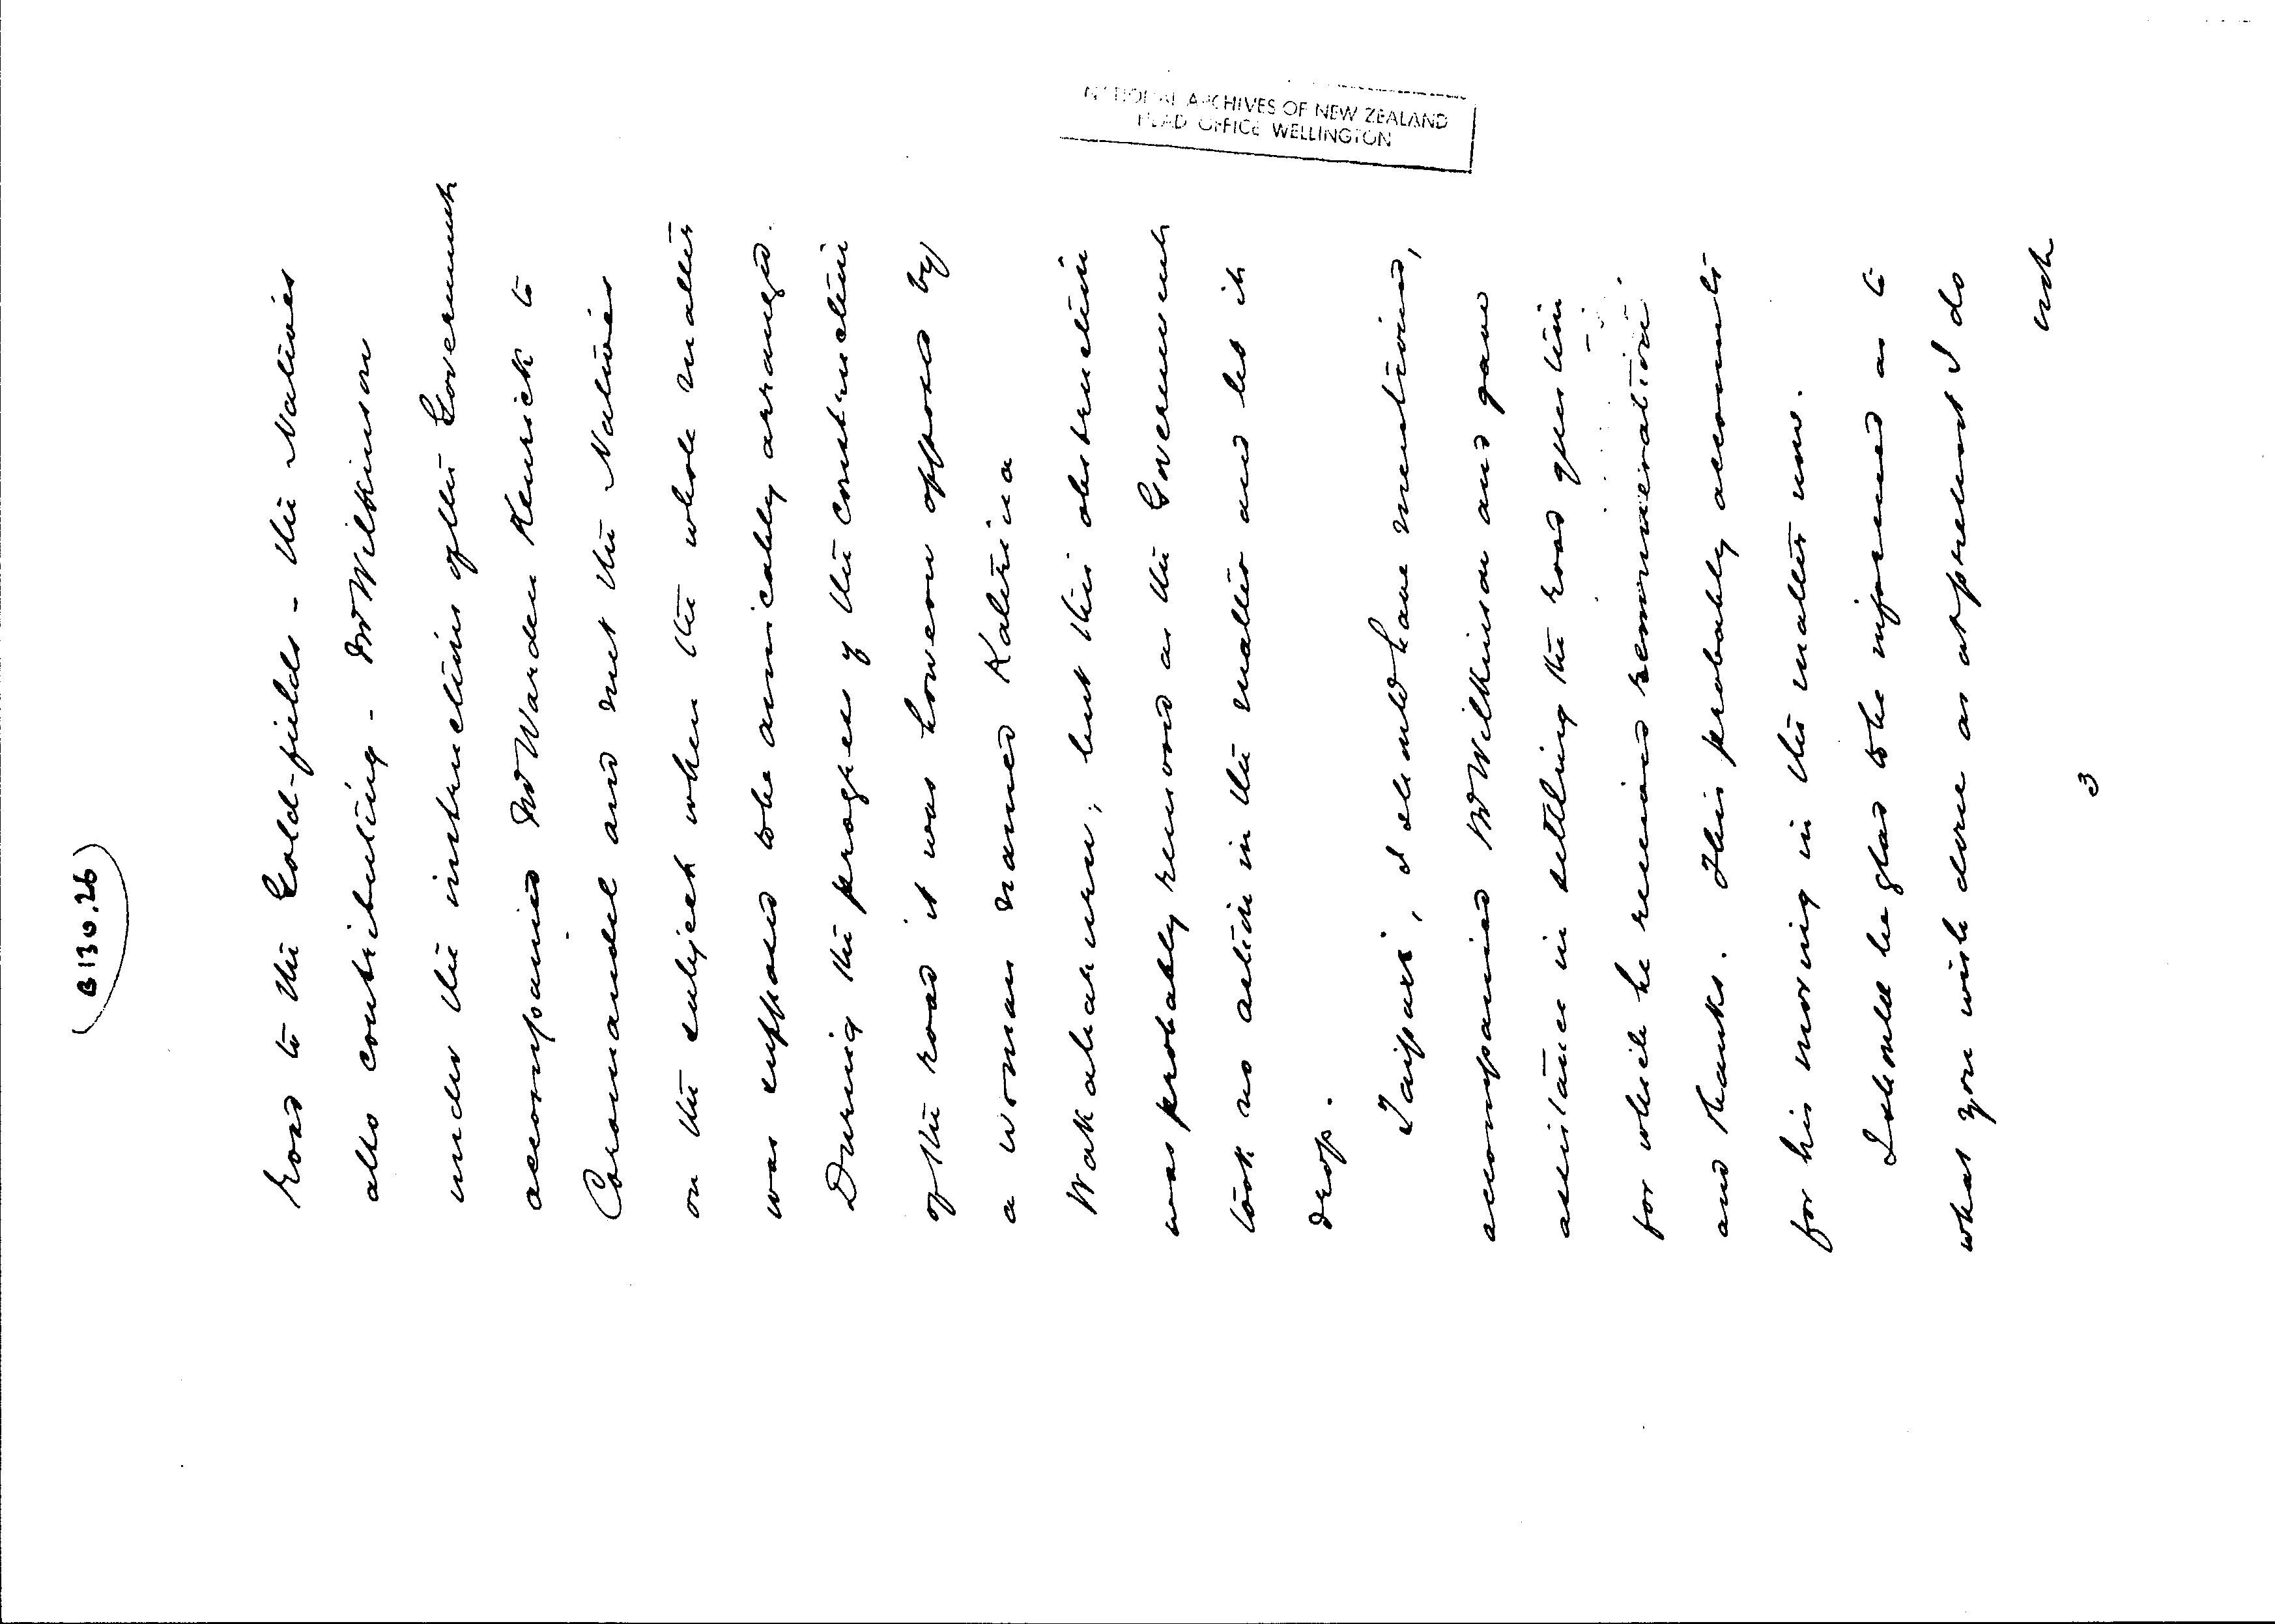 B 130.26
NATIONAL ARCHIVES OF NEW ZEALAND
HEAD OFFICE WELLINGTON
road to the Gold-fields - the Natives
also contributing - Mr Wilkinson
under the instructions of the Government
accompanied Mr Warden Kenrick to
Coromandel and met the Natives
on the subject when the whole matter
was supposed to be amicably arranged.
During the progress of the construction
of the road it was however opposed by
a woman named Katerina
but this obstruction
was probably removed as the Government
took no action in the matter and let it
drop.
Taipari, I should have mentioned,
accompanied Mr Wilkinson and gave
assistance in settling the road question
for which he received remuneration
and thanks. This probably accounts
for his moving in the matter now.
I should be glad to be informed as to
what you wish done as at present I do
not
3